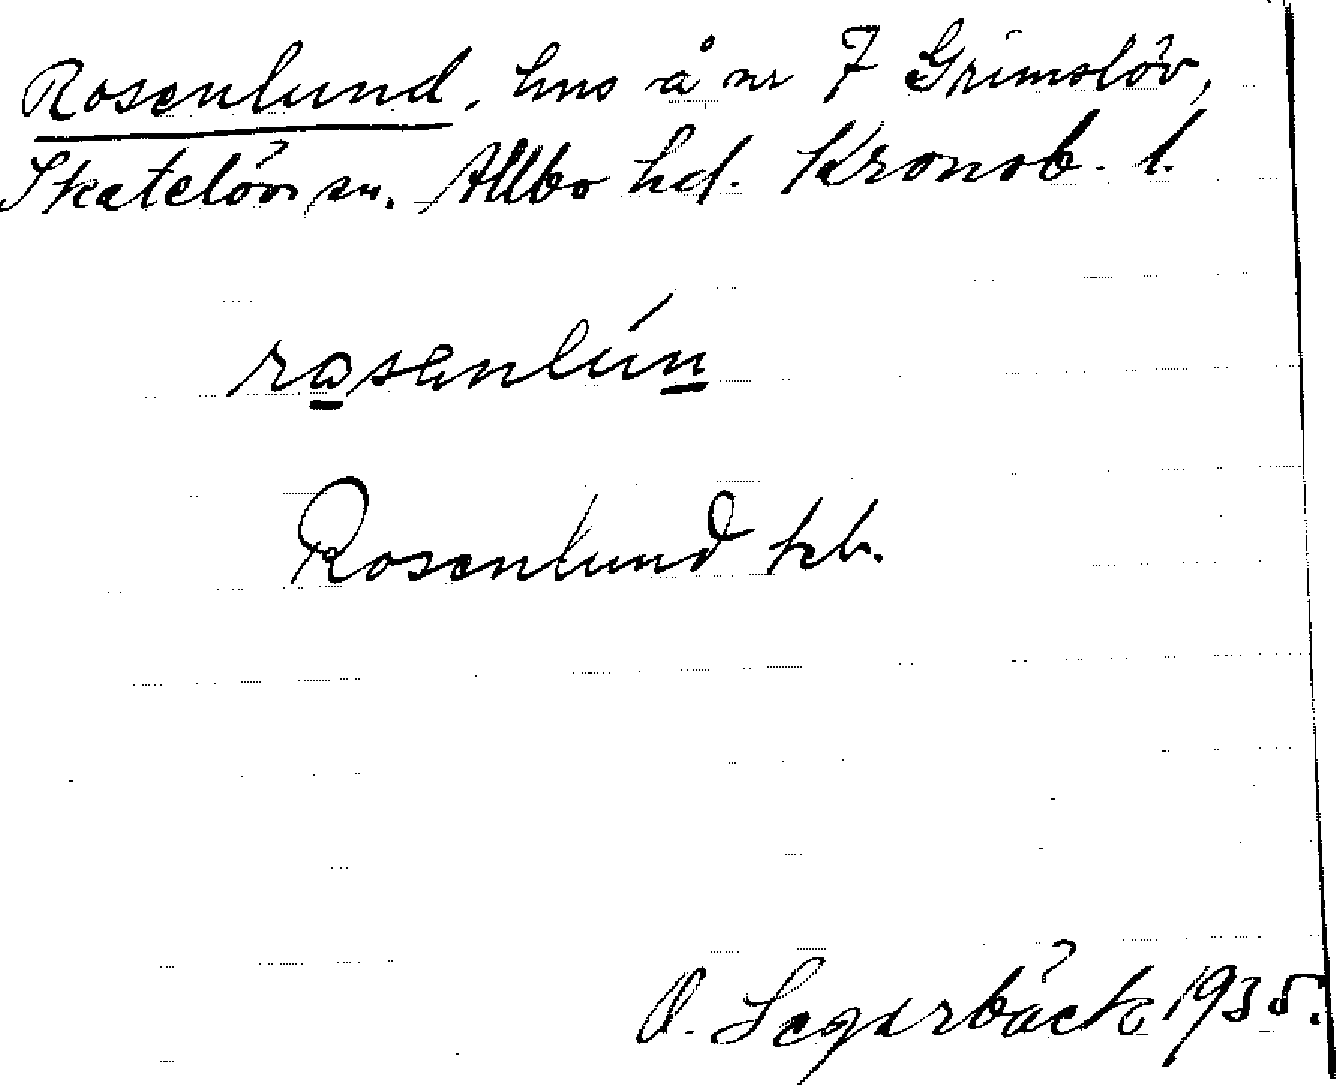 Rosenlund, hus å nr 7 Grimslöv,
Skatelövs sn. Allbo hd. Kronob. l.
rosenlún
Rosenlund kb.
O. Segerbäck 1935.